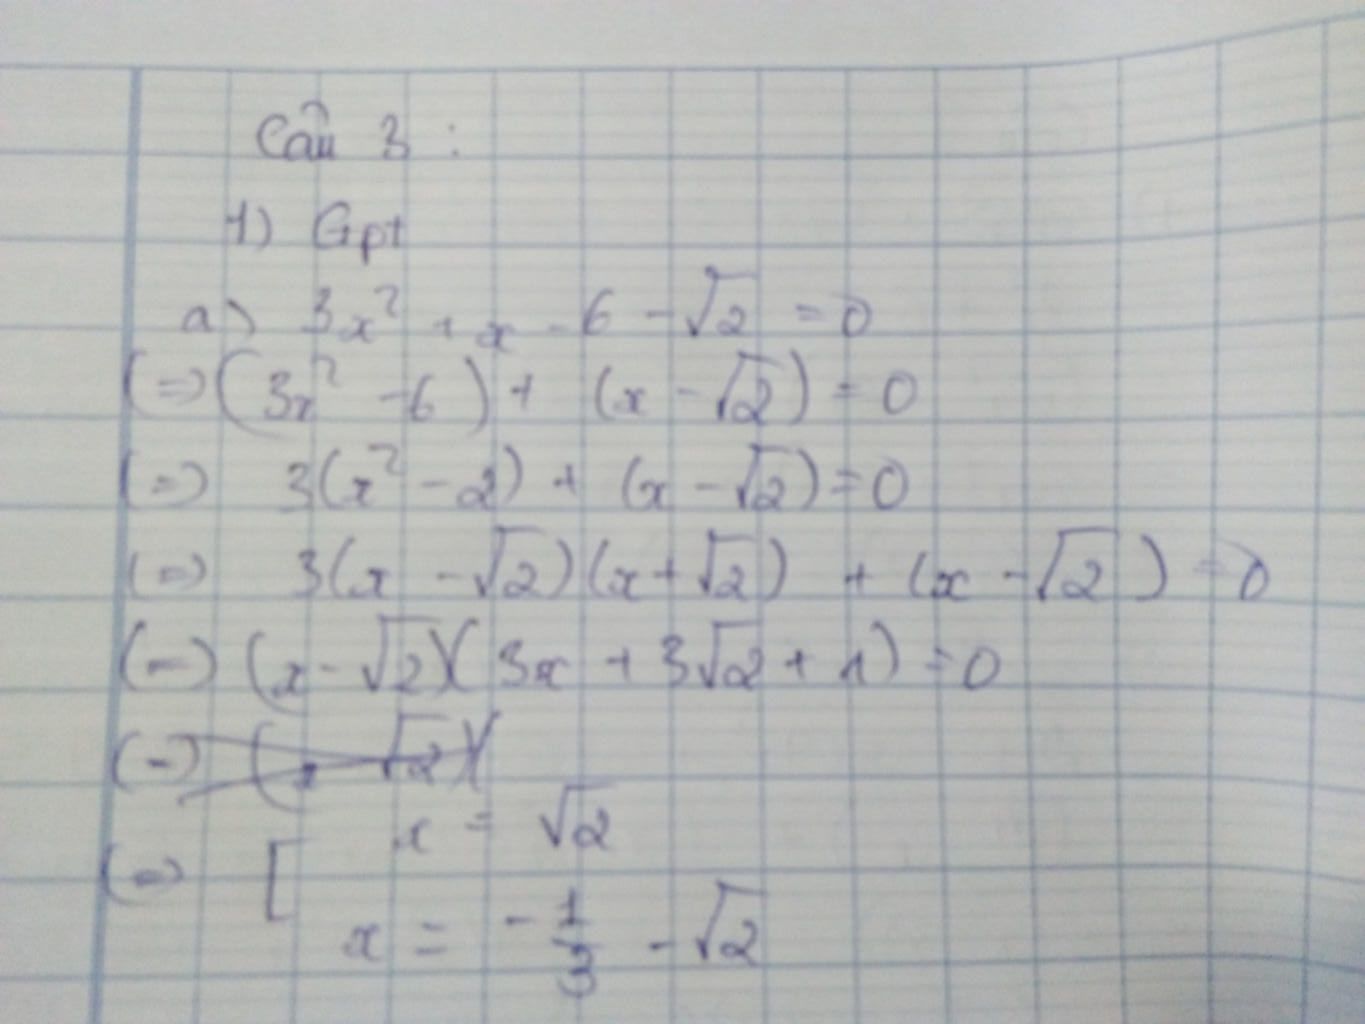 Câu 3 :
1) Gpt
a) 3x² + x - 6 - √2 = 0
(=) (3x² - 6) + (x - √2) = 0
(=) 3(x² - 2) + (x - √2) = 0
(=) 3(x - √2)(x + √2) + (x - √2) = 0
(=) (x - √2)(3x + 3√2 + 1) = 0
(=) [ x = √2
x = - 1/3 - √2